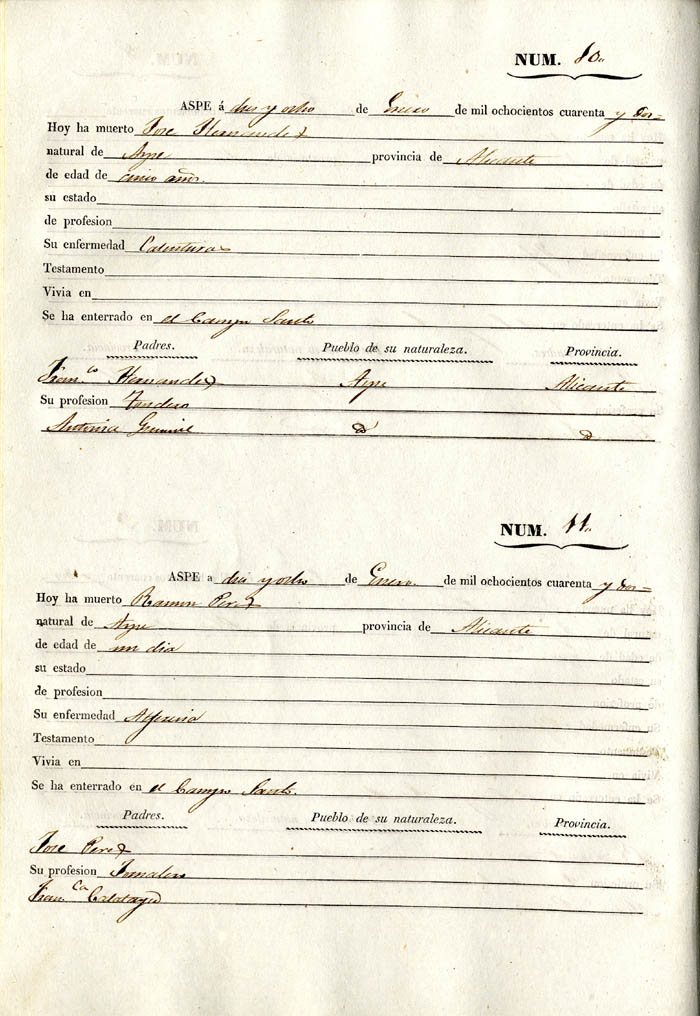 NUM. 10.
ASPE á diez y ocho de Enero de mil ochocientos cuarenta y dos
Hoy ha muerto Jose Hernandez
natural de Aspe provincia de Alicante
de edad de cinco años.
su estado
de profesion
Su enfermedad Calenturas
Testamento
Vivia en
Se ha enterrado en el Campo Santo
Padres. Pueblo de su naturaleza. Provincia.
Fran.co Hernandez Aspe Alicante
Su profesion
Antonia
NUM. 11.
ASPE a diez y ocho de Enero de mil ochocientos cuarenta y dos
Hoy ha muerto Ramon Perez
natural de Aspe provincia de Alicante
de edad de un dia
su estado
de profesion
Su enfermedad Alferecia
Testamento
Vivia en
Se ha enterrado en el Campo Santo.
Padres. Pueblo de su naturaleza. Provincia.
Jose Perez
Su profesion Jornalero
Fran.ca Calatayud